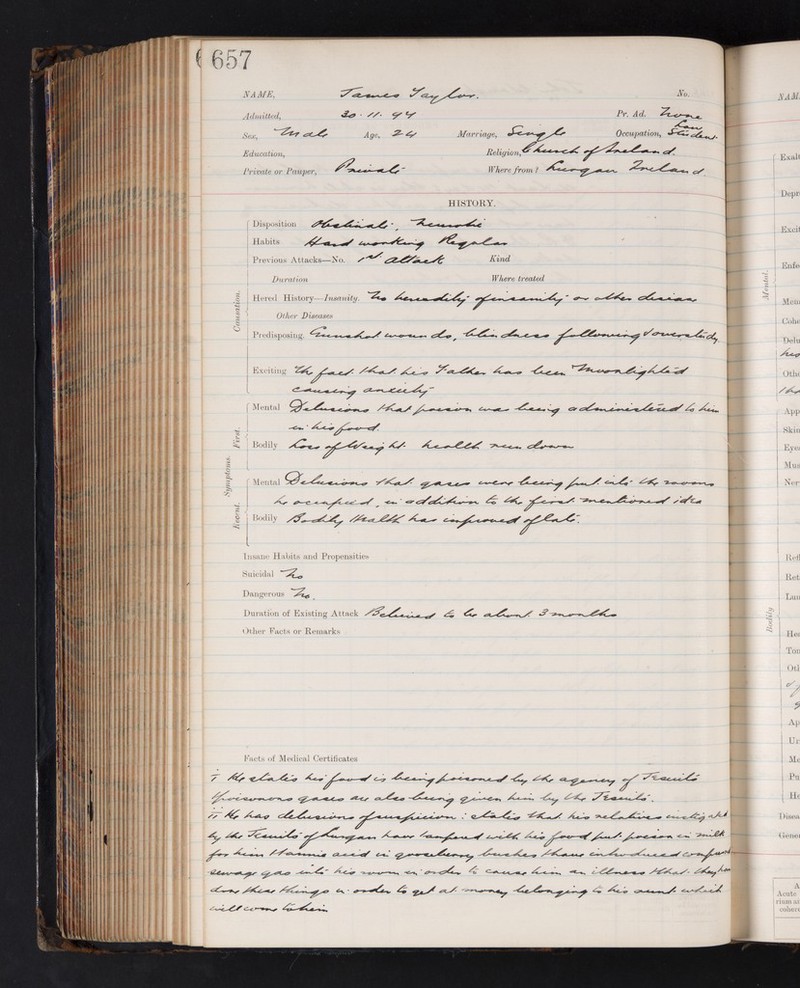 657
NAME, James Taylor. No.
Admitted, 30. 11. 94 Pr. Ad. None
Sex, Male Age, 24 Marriage, Single Occupation, Law Student
Education, Religion, Church of Ireland.
Private or Pauper, Private Where from? Lurgan Ireland
HISTORY.
Disposition Obstinate, Neurotic
Habits Hard working Regular
Previous Attacks—No. 1st attack Kind
Duration Where treated
Causation.
Hered History—Insanity. No heredity of insanity or other disease
Other Diseases
Predisposing. Gunshot wounds, blindness following & overstudy
Exciting The fact that his Father has been "Moonlighted
causing anxiety
Symptoms.
First.
Mental Delusions that poison was being administered to him
in his food.
Bodily Loss of Weight. health run down
Recent.
Mental Delusions that gases were being put into the rooms
he occupied, in addition to the first mentioned idea
Bodily Bodily Health has improved of late.
Insane Habits and Propensities
Suicidal No
Dangerous No.
Duration of Existing Attack Believed to be about 3 months
Other Facts or Remarks
Facts of Medical Certificates
I He states his food is being poisoned by the agency of Jesuits
& poisonous gases are also being given him by the Jesuits.
II He has delusions of suspicion: states that his relatives instigated
by the Jesuits of Lurgan have tampered with his food put poison in milk
for him & tannic acid in gooseberry bushes & have introduced
sewage gas into his room in order to cause him an illness & that they have
done these things in order to get at money belonging to his aunt which
will come to him
NAM
Exalt
Depr
Excit
Enfe
Mental.
Mem
Cohe
Delu
his
Othe
App
Skin
Eyes
Mus
Ner
Refl
Ret
Lun
Bodily
Hea
Ton
Oth
Ap
Uri
Me
Pu
He
Disea
Gener
A
Acute
rium ai
coherc